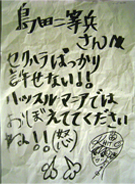 島田二等兵
さんへ
セクハラばっかり
許せない!!
ハッスルマニアでは
おぼえててください
ね!!(怒)